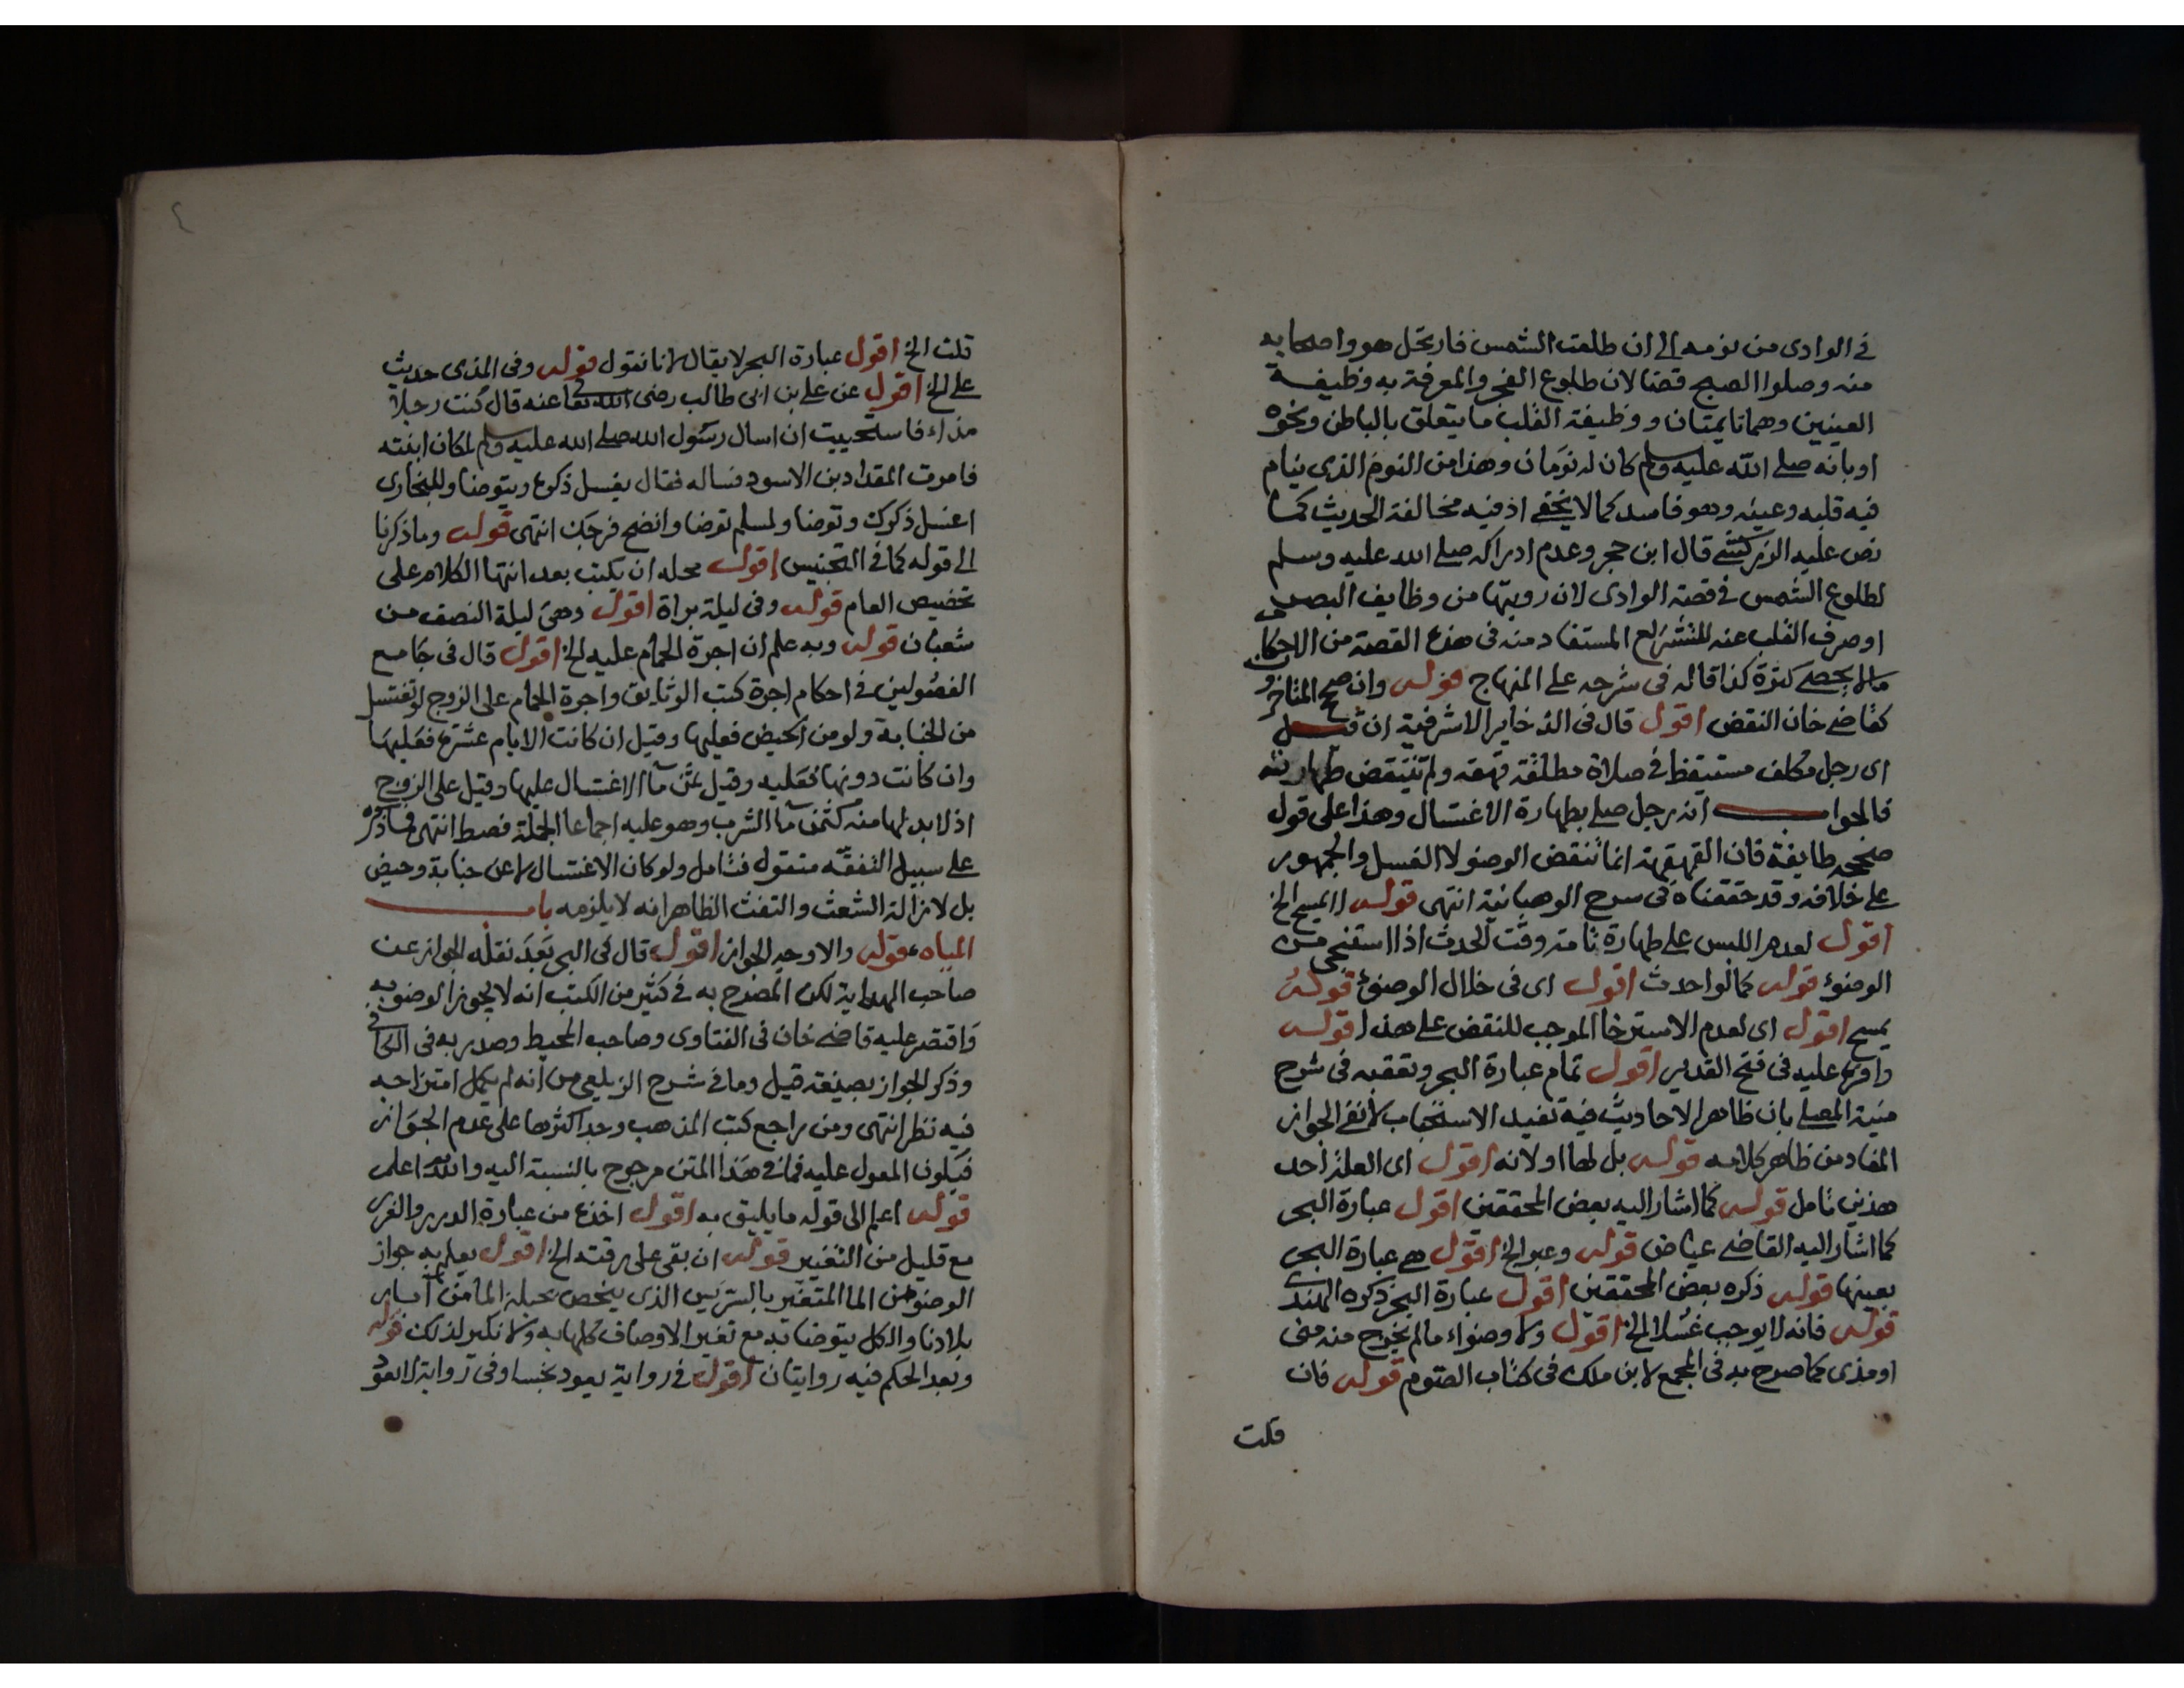 في الوادي من نومه إلى ان طلعت الشمس فارتحل هو واصحابه
منه وصلوا الصبح قضا لان طلوع الفجر والمعرفة به وظيفة
العينين وهما نايمتان ووظيفة القلب ما يتعلق بالباطن ونحوه
او بانه صلى الله عليه وسلم كان له نومان وهذا من النوم الذي ينام
فيه قلبه وعينه وهو فاسد كما لا يخفى اذ فيه مخالفة الحديث كما
نص عليه الزركشي قال ابن حجر وعدم ادراكه صلى الله عليه وسلم
لطلوع الشمس في قصة الوادي لان رويتها من وظايف البصر
او صرف القلب عنه للتشريع المستفاد منه في هذه القصة من الاحكام
مالا يحصى كثرة كذا قاله في شرحه على المنهاج قوله وان صحح المتاخرون
كقاضي خان النقض اقول قال في الذخاير الاشرفية ان قيل
اى رجل مكلف مستيقظ في صلاة مطلقة قهقه ولم تنتقض طهارته
فالجواب انه رجل صلى بطهارة الاغتسال وهذا على قول
صححه طايفة فان القهقهة انما تنقض الوضو لا الغسل والجمهور
على خلافه وقد حققناه في شرح الوهبانية انتهى قوله المسح الخ
اقول لعدم اللبس على طهارة تامة وقت الحدث اذا استنجى من
الوضوء قوله كما لو احدث اقول اى في خلال الوضوء قوله
يمسح اقول اى لعدم الاسترخا الموجب للنقض على هذا قوله
واقره عليه في فتح القدير اقول تمام عبارة البحر وتعقبه في شرح
منية المصلي بان ظاهر الاحاديث فيه تفيد الاستحباب لا نفي الجواز
المفاد من ظاهر كلامه قوله بل لها اولانه اقول اى العلة احد
هذين تامل قوله كما اشار اليه بعض المحققين اقول عبارة البحر
كما اشار اليه القاضي عياض قوله وعبر الخ اقول هي عبارة البحر
بعينها قوله ذكره بعض المحققين اقول عبارة البحر ذكره الهندي
قوله فانه لا يوجب غسلا الخ اقول ولا وضواء مالم يخرج منه مني
او مذى كما صرح به في المجمع لابن ملك في كتاب الصوم قوله فان
قلت
٤
قلت الخ اقول عبارة البحر لا يقال لانا نقول قوله وفي المذي حديث
على الخ اقول عن علي بن ابى طالب رضى الله تعالى عنه قال كنت رجلا
مذاء فاستحييت ان اسال رسول الله صلى الله عليه وسلم لمكان ابنته
فامرت المقداد بن الاسود فساله فقال يغسل ذكره ويتوضا وللبخاري
اغسل ذكرك وتوضا ولمسلم توضا وانضح فرجك انتهى قوله وما ذكرنا
الى قوله كما في التجنيس اقول محله ان يكتب بعد انتها الكلام على
تخصيص العام قوله وفى ليلة براة اقول وهى ليلة النصف من
شعبان قوله وبه علم ان اجرة الحمام عليه الخ اقول قال فى جامع
الفصولين في احكام اجرة كتب الوثايق واجرة الحمام على الزوج لو تغتسل
من الجنابة ولو من الحيض فعليها وقيل ان كانت الايام عشرة فعليها
وان كانت دونها فعليه وقيل ثمن ما الاغتسال عليها وقيل على الزوج
اذ لا بد لها منه كثمن ما الشرب وهو عليه اجماعا الجملة فصط انتهى فما ذكره
على سبيل التفقه منقول فتامل ولو كان الاغتسال لا عن جنابة وحيض
بل لازالة الشعث والتفث الظاهر انه لا يلزمه باب
المياه قوله والاوجه الجواز اقول قال في البحر بعد نقله الجواز عن
صاحب الهداية لكن المصرح به في كثير من الكتب انه لا يجوز الوضو به
واقتصر عليه قاضي خان فى الفتاوى وصاحب المحيط وصدر به فى الكافي
وذكر الجواز بصيغة قيل وما في شرح الزيلعي من انه لم يكمل امتزاجه
فيه نظر انتهى ومن راجع كتب المذهب وجد اكثرها على عدم الجواز
فيكون المعول عليه فما في هذا المتن مرجوح بالنسبة اليه والله اعلم
قوله اعلم الى قوله ما يليق به اقول اخذه من عبارة الدرر والغرر
مع قليل من التغيير قوله ان بقى على رقته الخ اقول يعلم به جواز
الوضو من الما المتغير بالسرتين الذى ينحص بحيلة الما من آبار
بلادنا والكل يتوضا به مع تغير الاوصاف كلها به ولا نكير لذلك قوله
وبعد الحكم فيه روايتان اقول في رواية يعود نجسا وفى رواية لا يعود